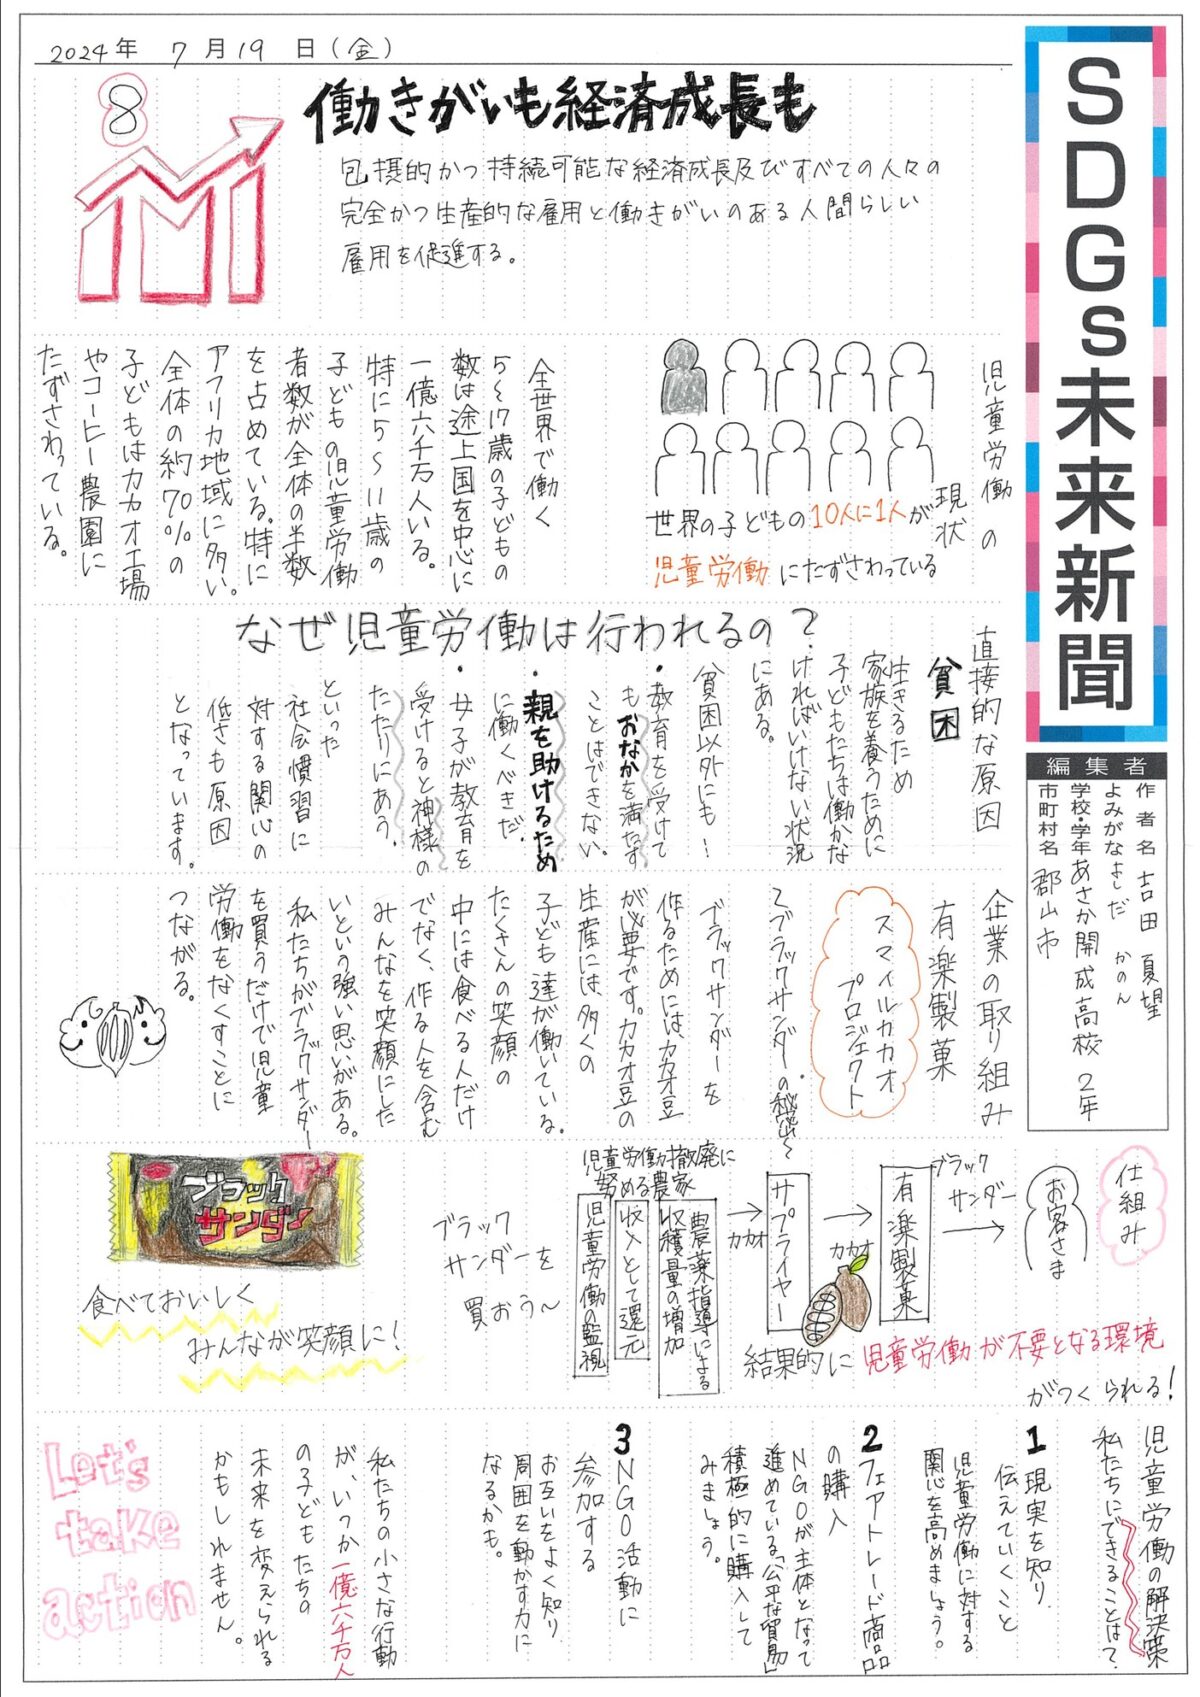 2024年 7月19日(金)
SDGs未来新聞
編集者
作者名 吉田 夏望
よみがな よしだ かのん
学校・学年 あさか開成高校 2年
市町村名 郡山市
8
働きがいも経済成長も
包摂的かつ持続可能な経済成長及びすべての人々の
完全かつ生産的な雇用と働きがいのある人間らしい
雇用を促進する。
児童労働の
現状
世界の子どもの10人に1人が
児童労働にたずさわっている
全世界で働く
5〜17歳の子どもの
数は途上国を中心に
一億六千万人いる。
特に5〜11歳の
子どもの児童労働
者数が全体の半数
を占めている。特に
アフリカ地域に多い。
全体の約70%の
子どもはカカオ工場
やコーヒー農園に
たずさわっている。
なぜ児童労働は行われるの?
直接的な原因
貧困
生きるため
家族を養うために
子どもたちは働かな
ければいけない状況
にある。
貧困以外にも…
・教育を受けて
もおなかを満たす
ことはできない。
・親を助けるため
に働くべきだ。
・女子が教育を
受けると神様の
たたりにあう。
といった
社会慣習に
対する関心の
低さも原因
となっています。
企業の取り組み
有楽製菓
スマイルカカオ
プロジェクト
〜ブラックサンダーの秘密〜
ブラックサンダーを
作るためには、カカオ豆
が必要です。カカオ豆の
生産には、多くの
子ども達が働いている。
たくさんの笑顔の
中には食べる人だけ
でなく、作る人を含む
みんなを笑顔にした
いという強い思いがある。
私たちがブラックサンダー
を買うだけで児童
労働をなくすことに
つながる。
仕組み
お客さま
ブラック
サンダー
有楽製菓
カカオ
サプライヤー
カカオ
児童労働撤廃に
努める農家
農薬指導による
収穫量の増加
収入として還元
児童労働の監視
結果的に児童労働が不要となる環境
がつくられる!
ブラック
サンダーを
買おう〜
ブラック
サンダー
食べておいしく
みんなが笑顔に!
児童労働の解決策
私たちにできることは?
1 現実を知り
伝えていくこと
児童労働に対する
関心を高めましょう。
2 フェアトレード商品
の購入
NGOが主体となって
進めている「公平な貿易」
積極的に購入して
みましょう。
3 NGO活動に
参加する
お互いをよく知り
周囲を動かす力に
なるかも。
私たちの小さな行動
が、いつか一億六千万人
の子どもたちの
未来を変えられる
かもしれません。
Let's
take
action